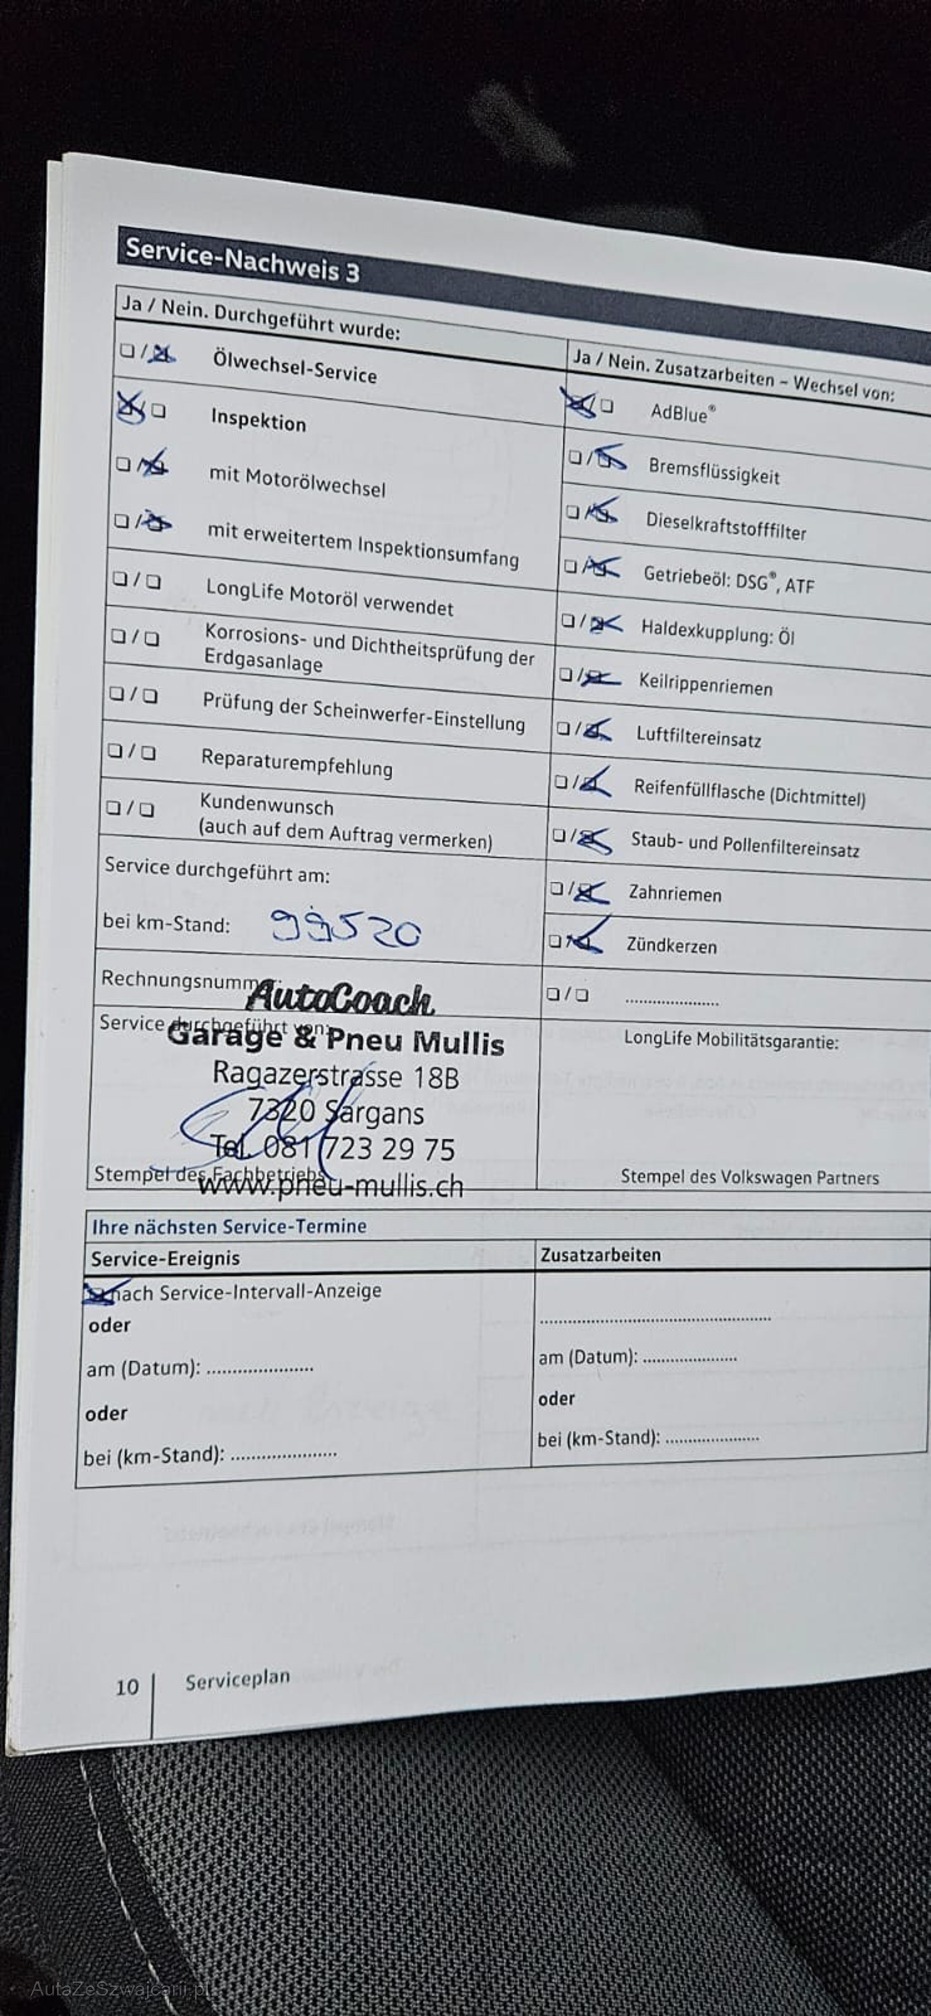 Service-Nachweis 3
Ja / Nein. Durchgeführt wurde:
❏ / ☒ Ölwechsel-Service
☒ / ❏ Inspektion
❏ / ☒ mit Motorölwechsel
❏ / ☒ mit erweitertem Inspektionsumfang
❏ / ❏ LongLife Motoröl verwendet
❏ / ❏ Korrosions- und Dichtheitsprüfung der
Erdgasanlage
❏ / ❏ Prüfung der Scheinwerfer-Einstellung
❏ / ❏ Reparaturempfehlung
❏ / ❏ Kundenwunsch
(auch auf dem Auftrag vermerken)
Service durchgeführt am:
bei km-Stand: 99520
Rechnungsnumm
Service durchgeführt von:
AutoCoach
Garage & Pneu Mullis
Ragazerstrasse 18B
7320 Sargans
Tel. 081 723 29 75
www.pneu-mullis.ch
Stempel des Fachbetriebs
Ja / Nein. Zusatzarbeiten – Wechsel von:
☒ / ❏ AdBlue®
❏ / ☒ Bremsflüssigkeit
❏ / ☒ Dieselkraftstofffilter
❏ / ☒ Getriebeöl: DSG®, ATF
❏ / ☒ Haldexkupplung: Öl
❏ / ☒ Keilrippenriemen
❏ / ☒ Luftfiltereinsatz
❏ / ☒ Reifenfüllflasche (Dichtmittel)
❏ / ☒ Staub- und Pollenfiltereinsatz
❏ / ☒ Zahnriemen
❏ / ☒ Zündkerzen
❏ / ❏ .....................
LongLife Mobilitätsgarantie:
Stempel des Volkswagen Partners
Ihre nächsten Service-Termine
Service-Ereignis
☒ nach Service-Intervall-Anzeige
oder
am (Datum): .....................
oder
bei (km-Stand): .....................
Zusatzarbeiten
....................................................
am (Datum): .....................
oder
bei (km-Stand): .....................
10 Serviceplan
AutaZeSzwajcarii.pl